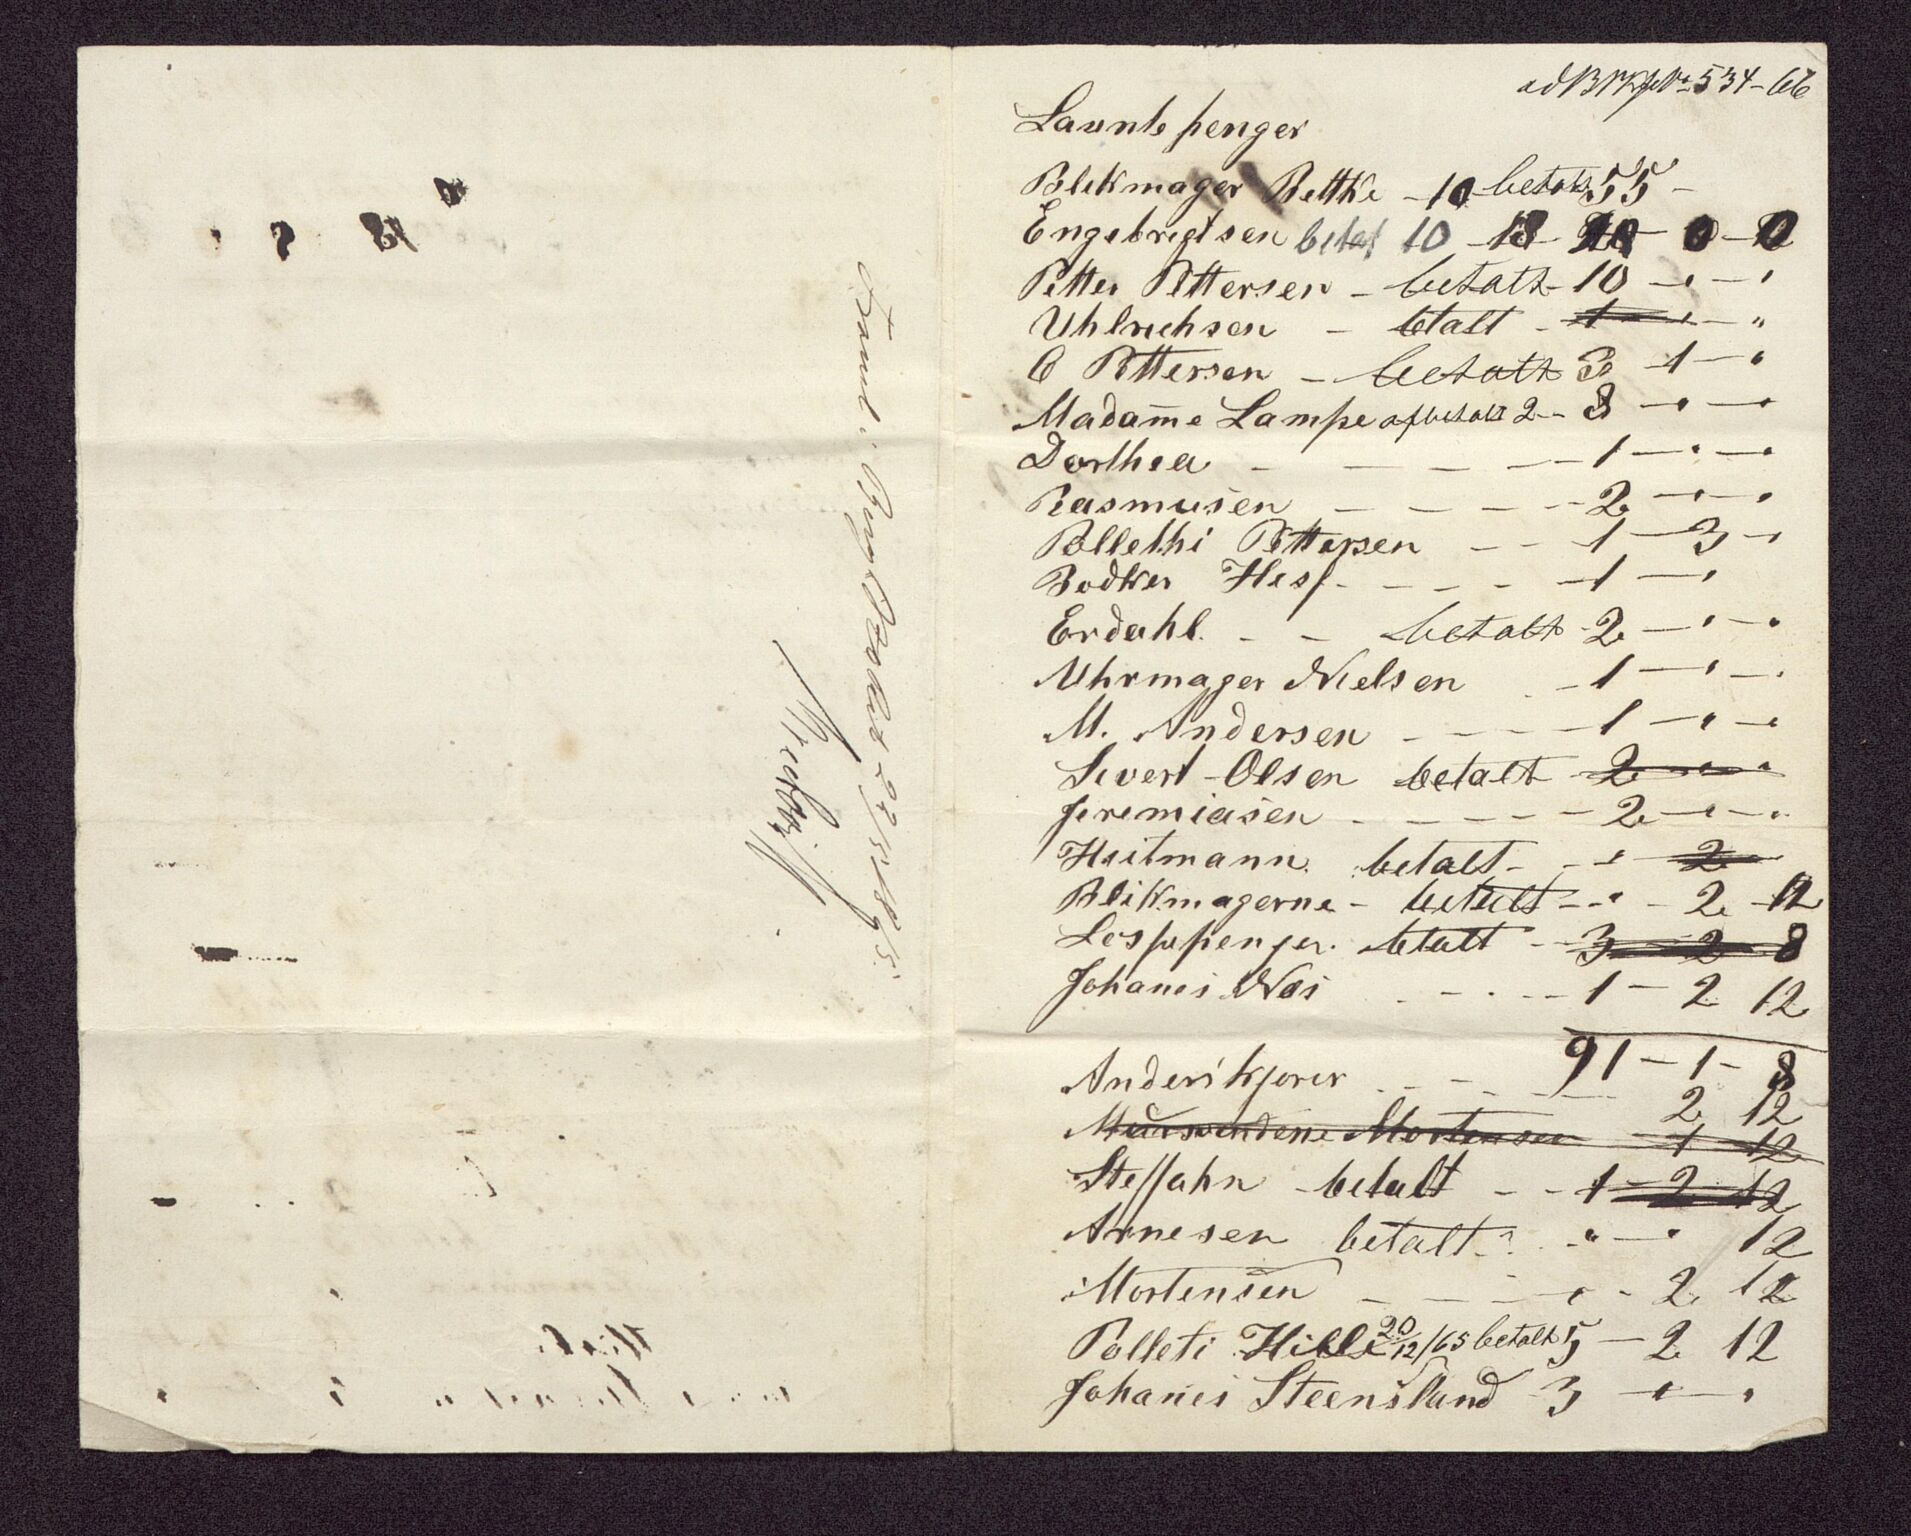 534-66
Launte penger
Blekmager Bettke - 10 betalt 55 -
Engebregtsen betalt 10 - 18 - 0 - 0
Petter Pettersen - betalt - 10 - " - "
Uhlrichsen - betalt - 1 - " - "
C Pettersen - betalt 3 - 1 - "
Madam̄e Lampe afbetalt 2 - 8 - " - "
Dorthea - - - - 1 - " - "
Rasmusen - - - - 2 - " - "
Pollethi Pettersen - - 1 - 3 - "
Bodker Hess - - - - 1 - "
Erdahl. - - betalt - 2 - " - "
Uhrmager Nielsen - 1 - " - "
M. Andersen - - - 1 - " - "
Sivert Olsen betalt - 2 - " - "
Jeremiasen - - - - - 2 - " - "
Heitmann. betalt - - " - 2 -
Blikmagerne - betalt - - " - 2 - 12
penger. betalt - - 3 - 2 - 8
Johanes Næs - - - 1 - 2 12
91 - 1 - 8
Anders kjører - - - 2 12
Mortensen - 1 - 12
Steffahn - betalt - - 1 - 2 12
Arnesen betalt - " - " 12
Mortensen - - - " - 2 12
Polleti Hille 20/12/65 betalt 5 - 2 12
Johanes Steensland 3 - " - "